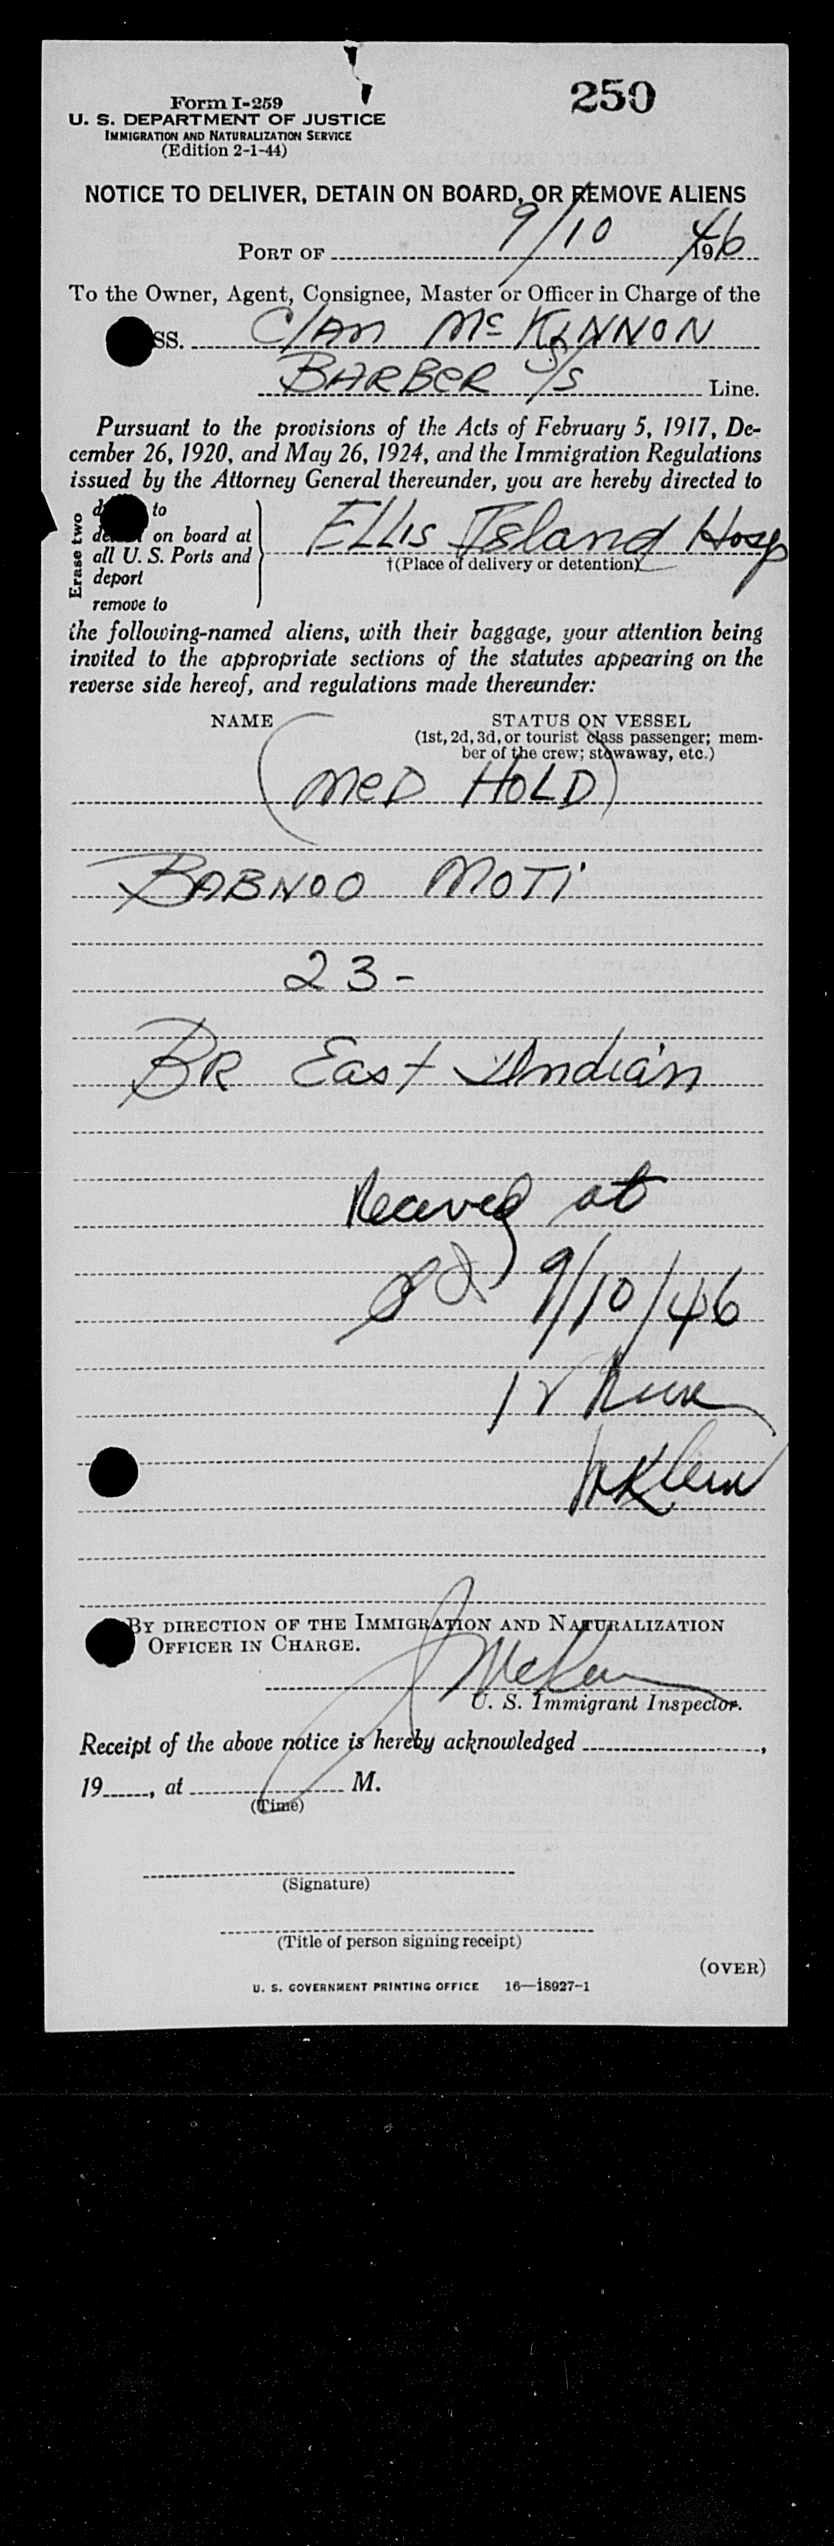 Form I-259
250
U. S. DEPARTMENT OF JUSTICE
IMMIGRATION AND NATURALIZATION SERVICE
(Edition 2-1-44)
NOTICE TO DELIVER, DETAIN ON BOARD, OR REMOVE ALIENS
PORT OF 9/10 1946
To the Owner, Agent, Consignee, Master or Officer in Charge of the
SS. Clan McKinnon
BARBER S/S Line.
Pursuant to the provisions of the Acts of February 5, 1917, De-
cember 26, 1920, and May 26, 1924, and the Immigration Regulations
issued by the Attorney General thereunder, you are hereby directed to
Erase two
to
on board at
all U. S. Ports and
deport
remove to
Ellis Island Hosp
†(Place of delivery or detention)
the following-named aliens, with their baggage, your attention being
invited to the appropriate sections of the statutes appearing on the
reverse side hereof, and regulations made thereunder:
NAME STATUS ON VESSEL
(1st, 2d, 3d, or tourist class passenger; mem-
ber of the crew; stowaway, etc.)
(MED HOLD)
BABNOO MOTI
23-
BR East Indian
Received at
9/10/46
12
Klein
BY DIRECTION OF THE IMMIGRATION AND NATURALIZATION
OFFICER IN CHARGE.
U. S. Immigrant Inspector.
Receipt of the above notice is hereby acknowledged ,
19 , at M.
(Time)
(Signature)
(Title of person signing receipt)
(OVER)
U. S. GOVERNMENT PRINTING OFFICE 16—18927-1